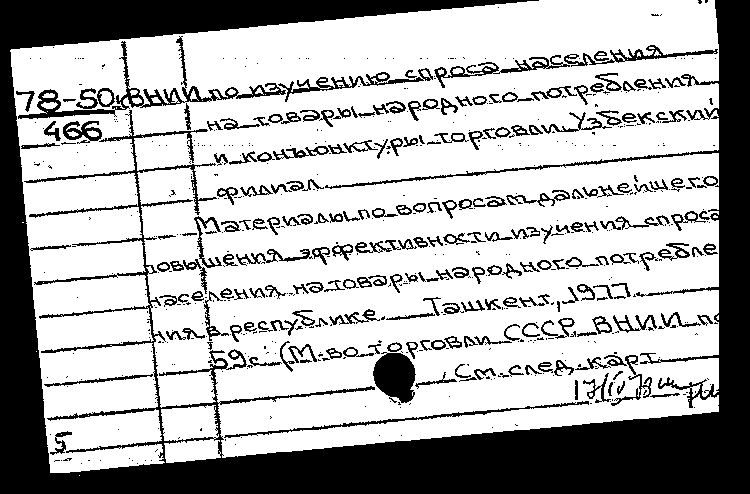 78-50к ВНИИ по изучению спроса населения
466 на товары народного потребления
и конъюнктуры торговли. Узбекский
филиал.
Материалы по вопросам дальнейшего
повышения эффективности изучения спроса
населения на товары народного потребле
ния в республике. Ташкент, 1977.
59с. (М-во торговли СССР. ВНИИ по
См. след. карт.
17/IV 78
5